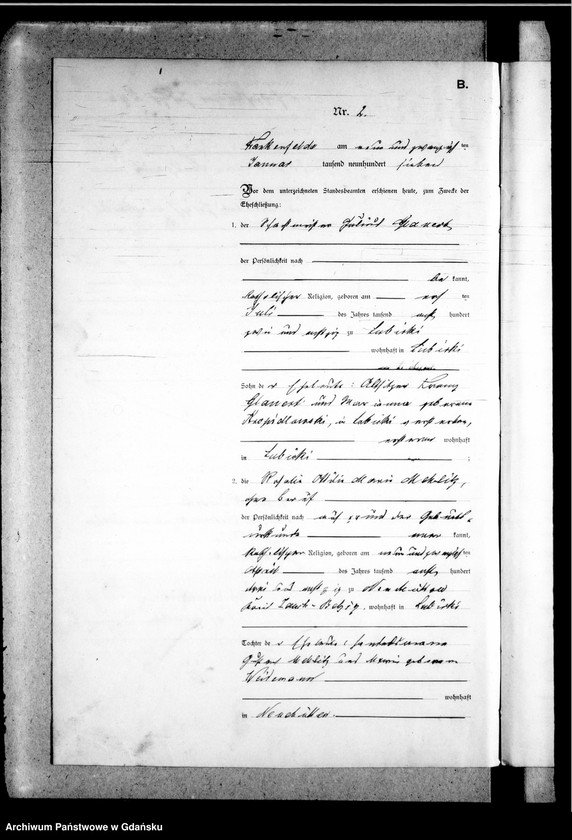 B.
Nr. 2.
Frankenfelde am neun und zwanzigsten
Januar tausend neunhundert sieben
Vor dem unterzeichneten Standesbeamten erschienen heute, zum Zwecke der
Eheschließung:
1. der Julius Glanert,
der Persönlichkeit nach
be kannt,
katholischer Religion, geboren am ten
Juli des Jahres tausend acht hundert
zwei und achtzig zu Lubicki
wohnhaft in Lubicki
Sohn der Eheleute: Altsitzer Franz
Glanert und Marianna geborene
in Lubicki verstorben,
wohnhaft
in Lubicki ;
2. die Rosalie Ottilie Marie
ohne Beruf
der Persönlichkeit nach auf Grund der Geburts-
urkunde aner kannt,
katholischer Religion, geboren am neun und zwanzigsten
April des Jahres tausend acht hundert
drei und achtzig zu Neuhütten
wohnhaft in Lubicki
Tochter der Eheleute:
und Marie geborenen
Weidemann
wohnhaft
in Neuhütten.
Archiwum Państwowe w Gdańsku